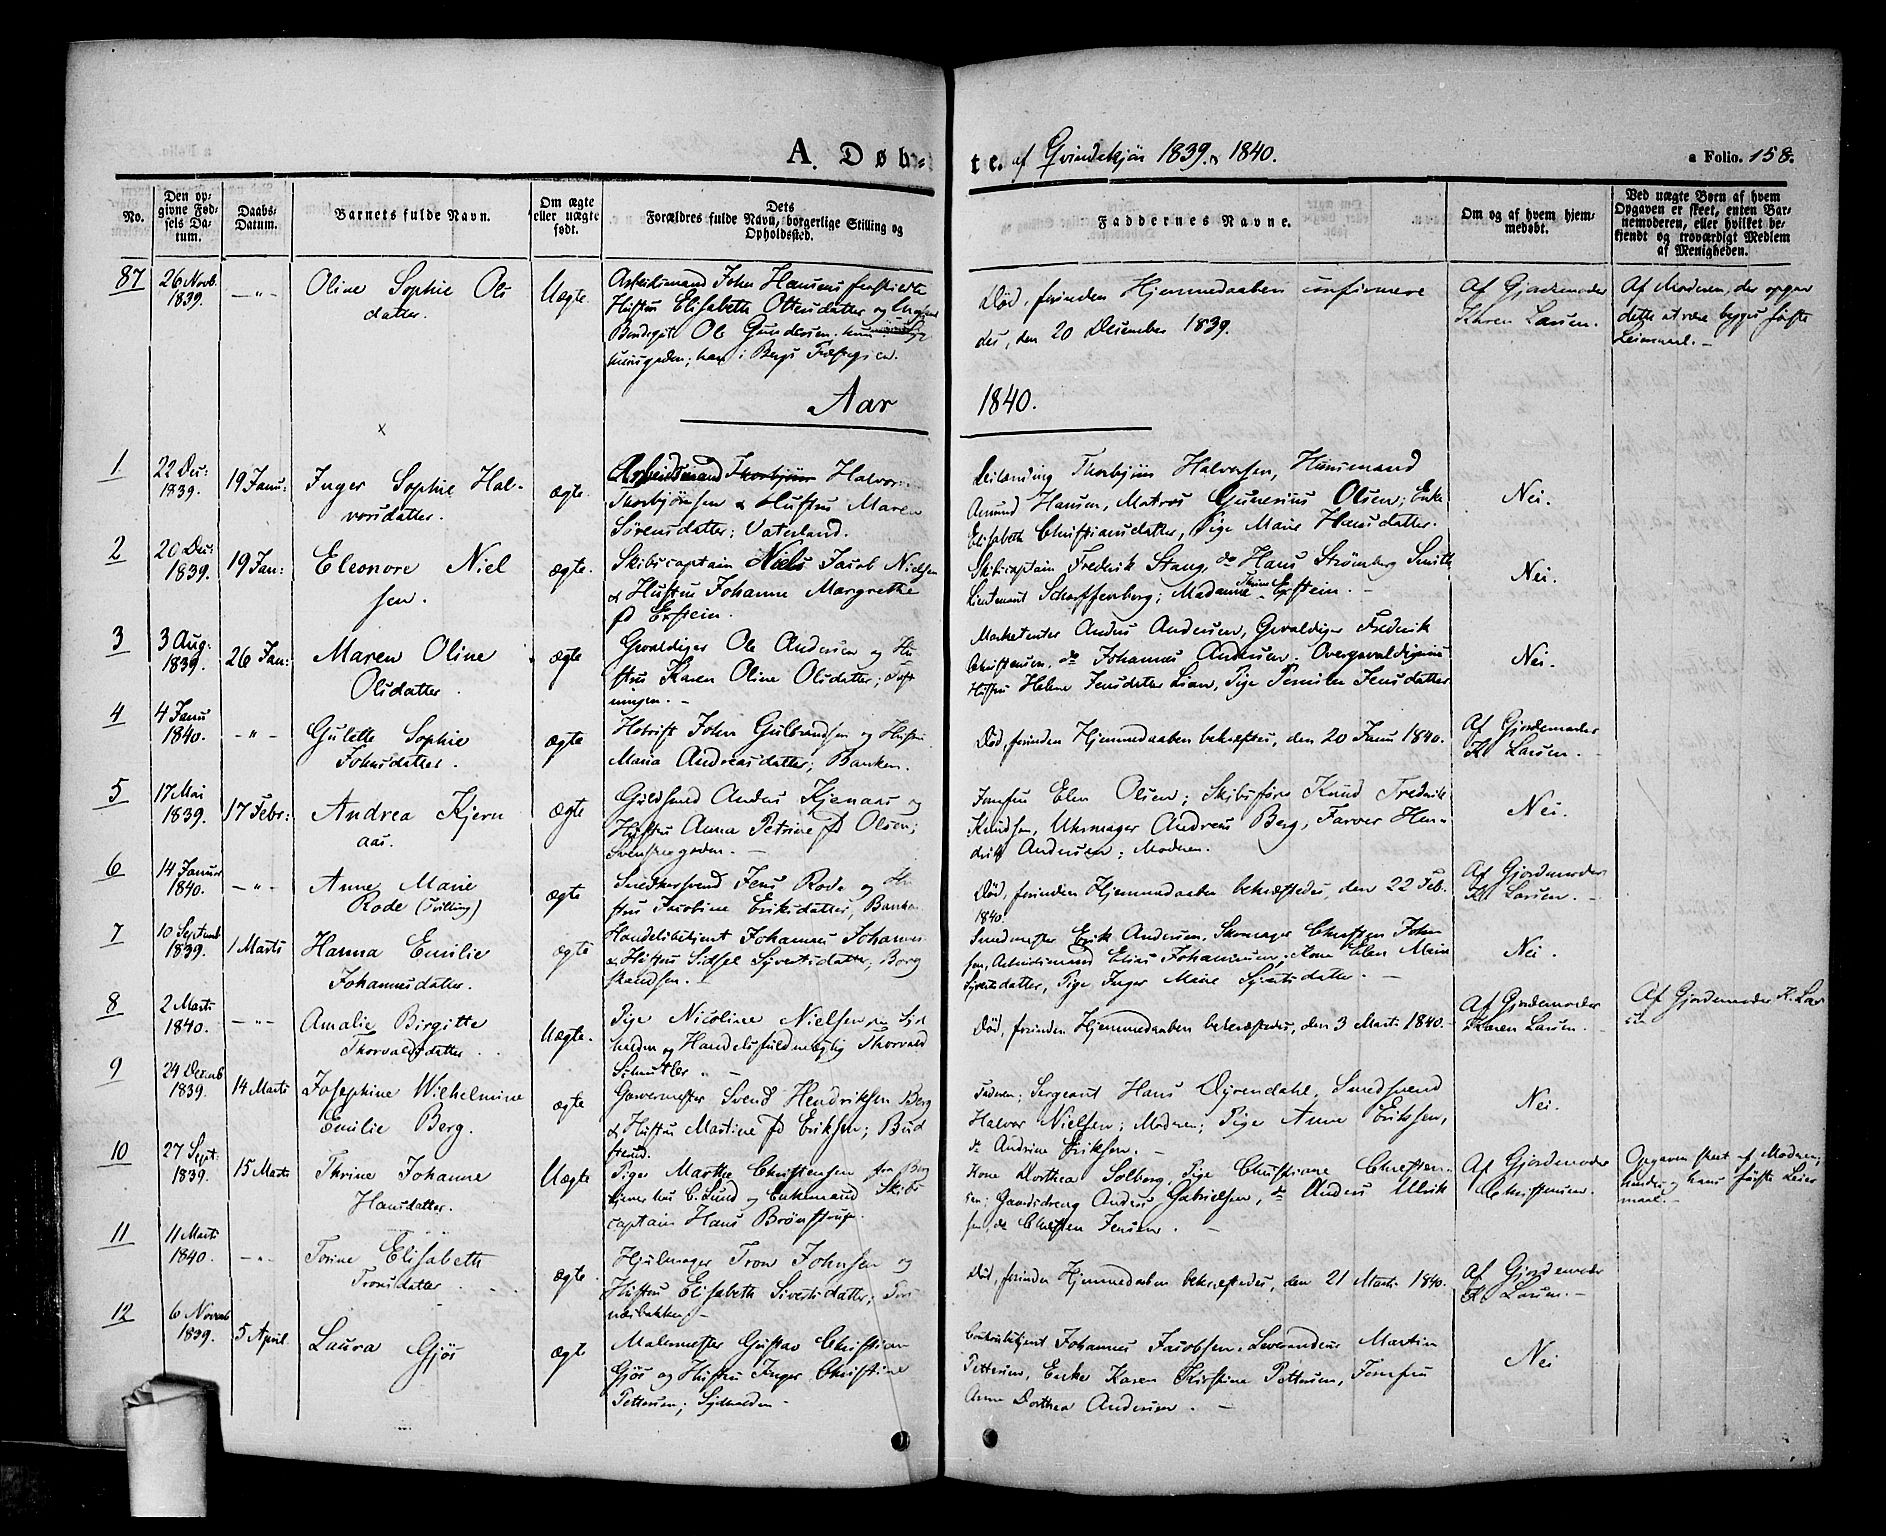 A. Døb=
te. af Qvindekjøn 1839. & 1840.
a Folio. 158.
No.
Den op-
givne Fød-
sels Da-
tum.
Daabs-
Datum.
Barnets fulde Navn.
Om ægte
eller uægte
født.
Dets
Forældres fulde Navn, borgerlige Stilling og
Opholdssted.
Faddernes Navne.
Om og af hvem hjem-
medøbt.
Ved uægte Børn af hvem
Opgaven er skeet, enten Bar-
nemoderen, eller hvilket be-
kjendt og troværdigt Medlem
af Menigheden.
87
26 Novb.
1839.
—"—
Oline Sophie Ols
datter.
Uægte.
Arbeidsmand John Hansens fraskilte
Hustru Elisabeth Olsdatter og
Ole Gundersen.
han i Bergs Præstegien.
Død, forinden Hjemmedaaben confirmere
des, den 20 December 1839.
Af Gjordemoder
Karen Larsen.
Af Moderen, der opgav
dette at være begges første
Leiermaal. —
Aar 1840.
1
22 Dec:
1839.
19 Janu:
Inger Sophie Hal-
vorsdatter.
ægte.
Arbeidsmand Thorbjørn Halvor
Thorbjørnsen & Hustru Maren
Sørensdatter; Vaterland.
Thorbjørn Halvorsen, Huusmand
Amund Hansen, Matros Gunerius Olsen; Enke
Elisabeth Christiansdatter, Pige Marie Hansdatter.
Nei.
2
20 Dec:
1839.
19 Jan:
Eleonore Niel
sen.
ægte.
Skibscaptain Niels Jacob Nielsen
& Hustru Johanne Margrethe
fd Erstein.
Skibscaptain Frederik Stang, do Hans Strømberg Smith
Lieutenant Scharffenberg; Madamme Thrine Erstein. —
Nei.
3
3 Aug:
1839.
26 Jan:
Maren Oline
Olsdatter.
ægte
Gevaldiger Ole Andersen og Hu
stru Karen Oline Olsdatter; Fæst
ningen. —
Marketenter Anders Andersen, Gevaldiger Frederik
Christensen, do Johannes Andersen. Overgevaldigerens
Hustru Helene Jensdatter Lian, Pige Pernille Jensdatter
Nei.
4
4 Janu
1840.
—"—
Gulette Sophie
Johnsdatter.
ægte
Hotrist John Gulbrandsen og Hustru
Maria Andreasdatter; Banken.
Død, forinden Hjemmedaaben bekræftes, den 20 Janu 1840.
Af Gjordemoder
K. Larsen. —
5
17 Mai
1839.
17 Febr:
Andrea Kjern
aas.
ægte
Guldsmed Anders Kjenaas og
Hustru Anna Petrine fd Olsen;
Svenskegaden. —
Jomfru Elen Olsen; Skibsfører Knud Frederik
Knudsen, Uhrmager Andreas Berg, Farver Hen-
drik Andersen; Moderen.
Nei.
6
14 Januar
1840.
—"—
Anne Marie
Rode (Tvilling)
ægte
Snedkersvend Jens Rode og Hu
stru Jacobine Eriksdatter, Banken
Død, forinden Hjemmedaaben bekræftedes, den 22 Feb.
1840.
Af Gjordemoder
K. Larsen. —
7
10 Septemb
1839.
1 Marts
Hanna Emilie
Johannesdatter.
ægte.
Handelsbetjent Johannes Johannes
& Hustru Sidsel Syvertsdatter, Borg
strandsen. —
Smedmester Erik Andersen, Skomager Christen John
sen, Arbeidsmand Elias Johannesen. Kone Elen Marie
Syvertsdatter, Pige Inger Marie Syvertsdatter. —
Nei.
8
2 Marts
1840.
—"—
Amalie Birgitte
Thorvaldsdatter.
Uægte.
Pige Nicoline Nielsen Syd
halden og Handelsfuldmægtig Thorvald
Schutler. —
Død, forinden Hjemmedaaben bekræftedes, den 3 Marts 1840.
Af Gjordemoder
Karen Larsen. —
Af Gjordemoder K. Lar
sen
9
24 Decemb
1839.
14 Marts
Josephine Wilhelmine
Emilie Berg.
ægte
Garvermester Svend Hendriksen Berg
& Hustru Martine fd Eriksen; Bud
strand.
Faderen; Sergeant Hans Dyrendahl, Smedsvend
Halvor Nielsen; Moderen; Pige Anne Eriksen,
do Andrine Eriksen. —
Nei.
10
27 Sept:
1839.
15 Marts
Thrine Johanne
Hansdatter.
Uægte
Pige Marthe Christensen fra Berg
tjener hos C. Lund og Enkemand Skibs
captain Hans Brønstrup.
Kone Dorthea Solberg, Pige Christiane Christen-
sen; Gaardsdreng Anders Gabrielsen, do Anders Ulrik
sen, do Christen Jensen. —
Af Gjordemoder
Christensen.
Opgaven skeet af Moderen;
hendes og hans første Leier
maal. —
11
11 Marts
1840.
—"—
Torine Elisabeth
Tronsdatter.
ægte.
Hjulmager Tron Johnsen og
Hustru Elisabeth Sivertsdatter; Tor
næsbakken. —
Død, forinden Hjemmedaaben bekræftedes, den 21 Marts 1840.
Af Gjordemoder
K. Larsen. —
12
6 Novemb
1839.
5 April.
Laura Gjøs
ægte
Malermester Gustav Christian
Gjøs og Hustru Inger Christine
Pettersen; Sydhalden —
Contorbetjent Johannes Jacobsen. Leverandeur Martin
Pettersen, Enke Karen Kirstine Pettersen, Jomfru
Anne Dorthea Andersen. —
Nei